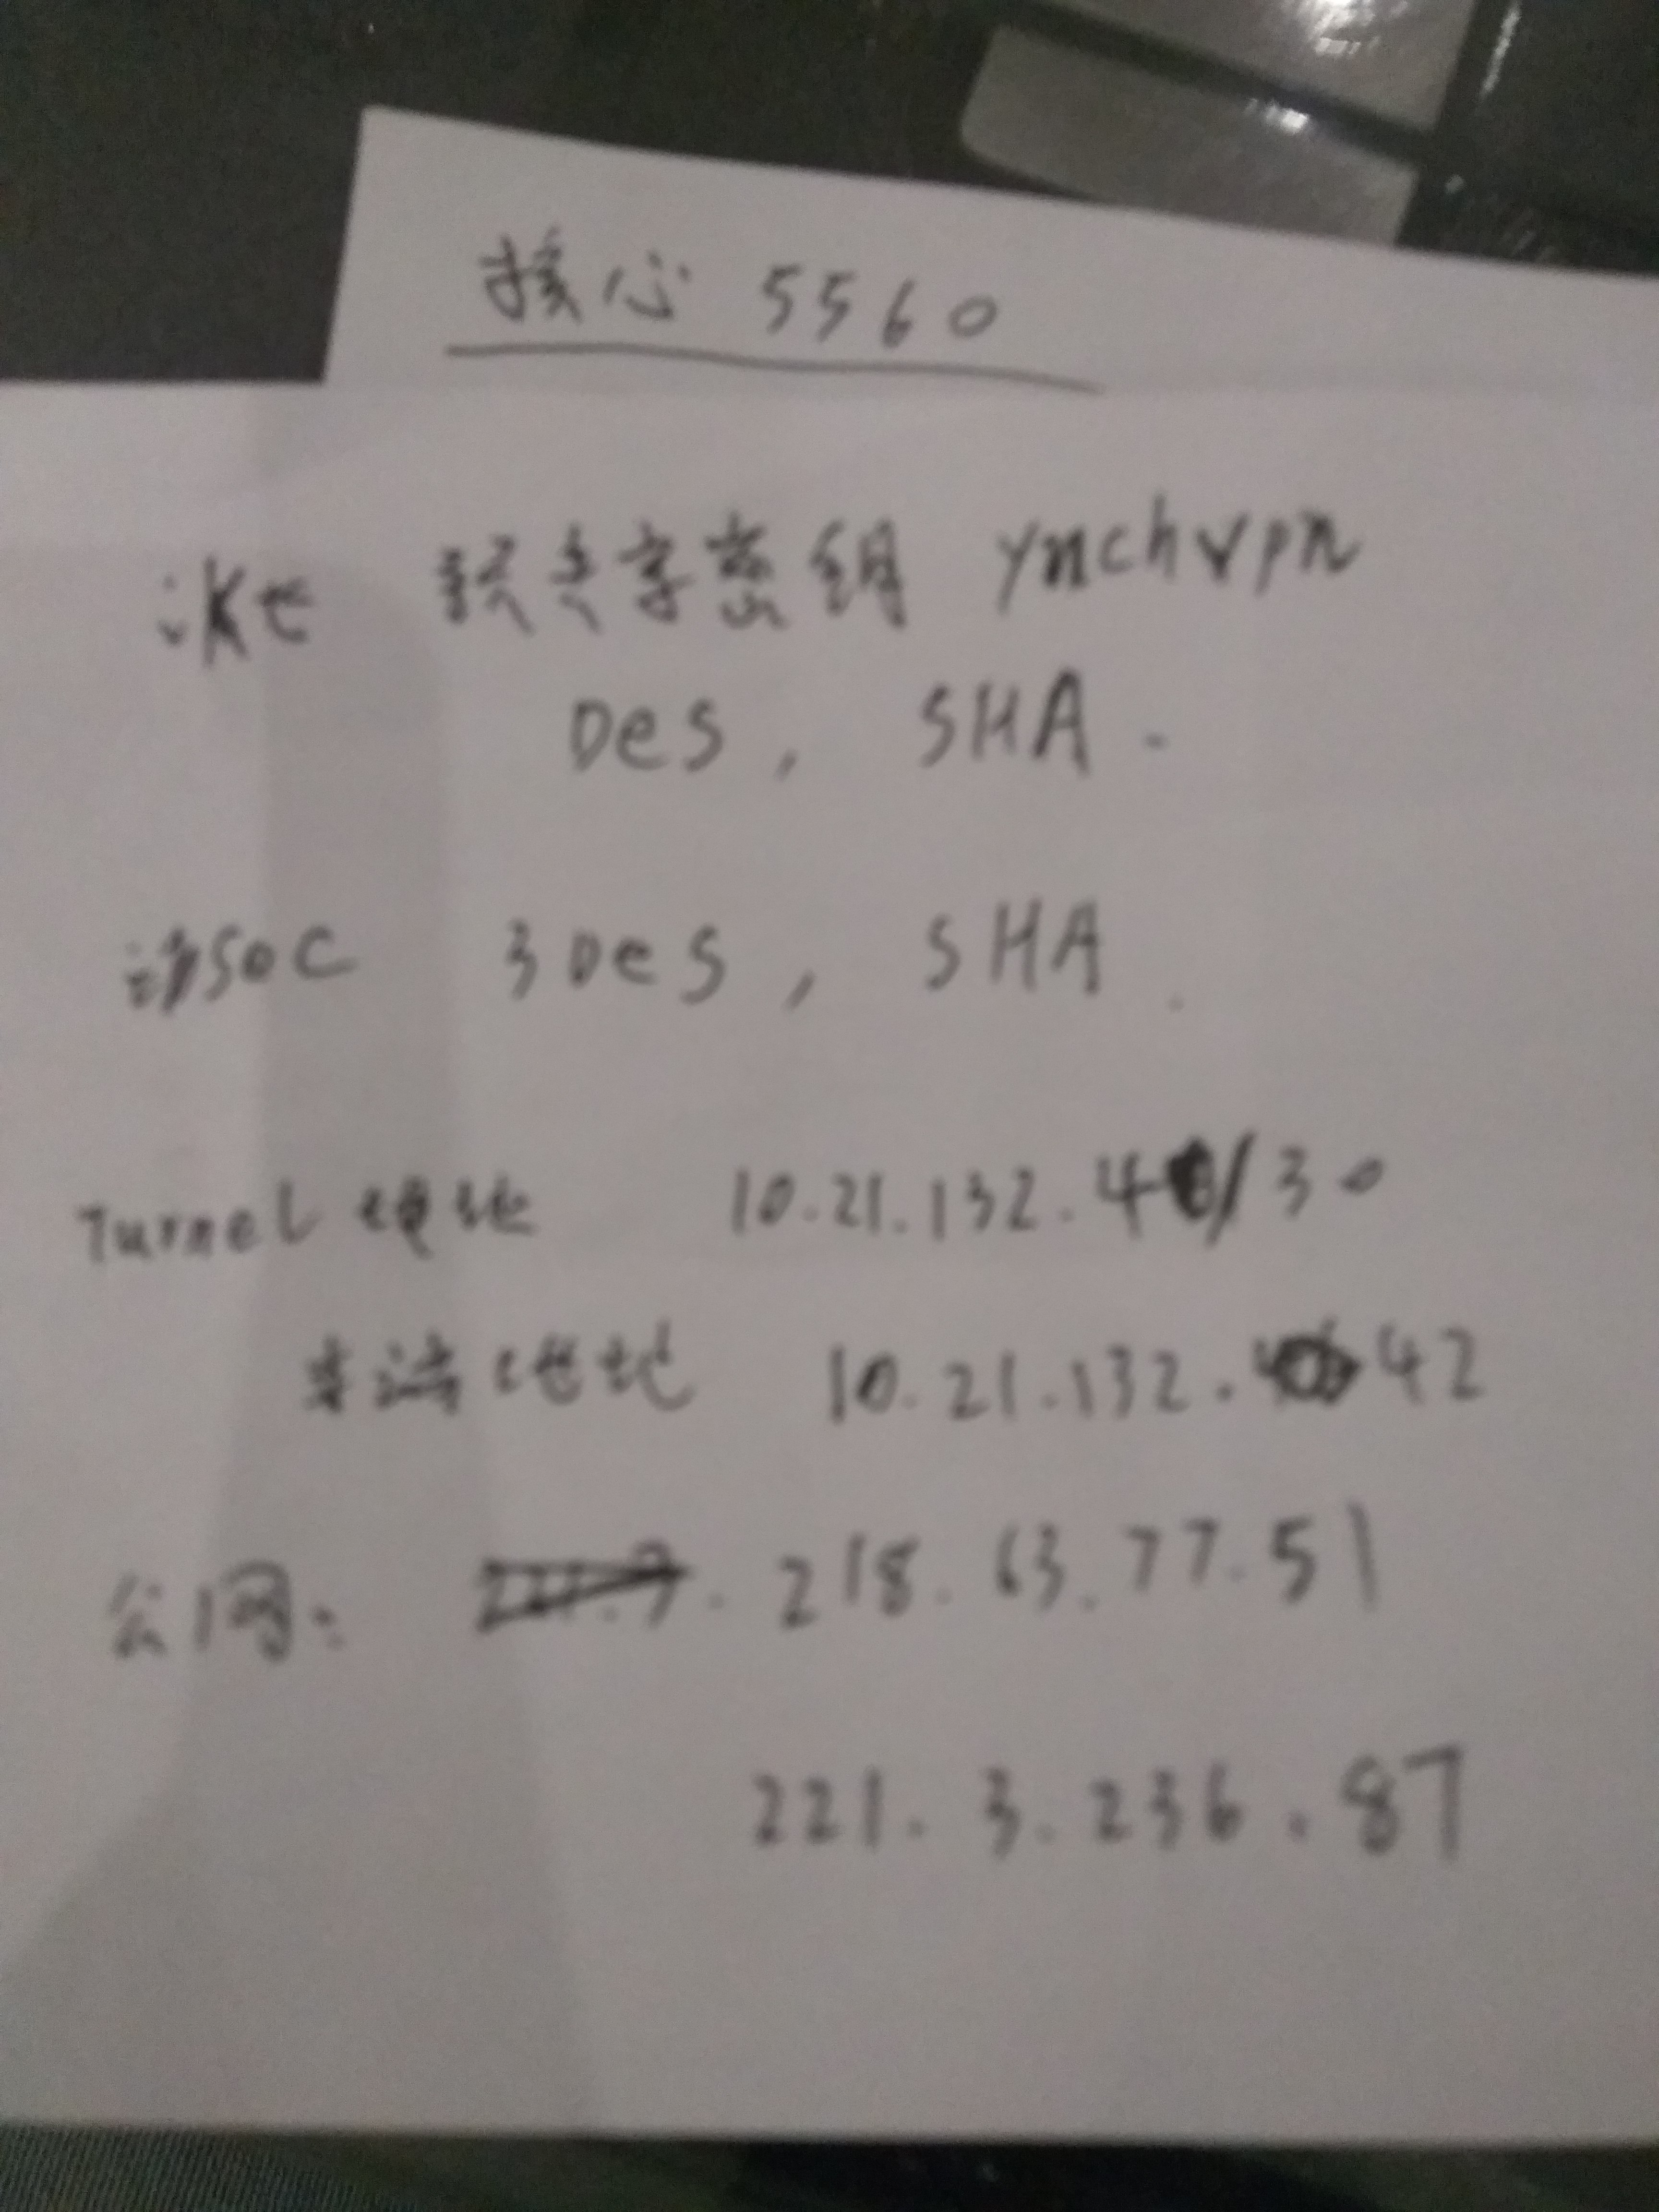 核心 5560
iKe 预共享密钥 ynchvpn
Des, SHA.
ipsec 3Des, SHA.
Tunnel 地址 10.21.132.40/30
本端地址 10.21.132.42
公网: 218.63.77.51
221.3.236.87